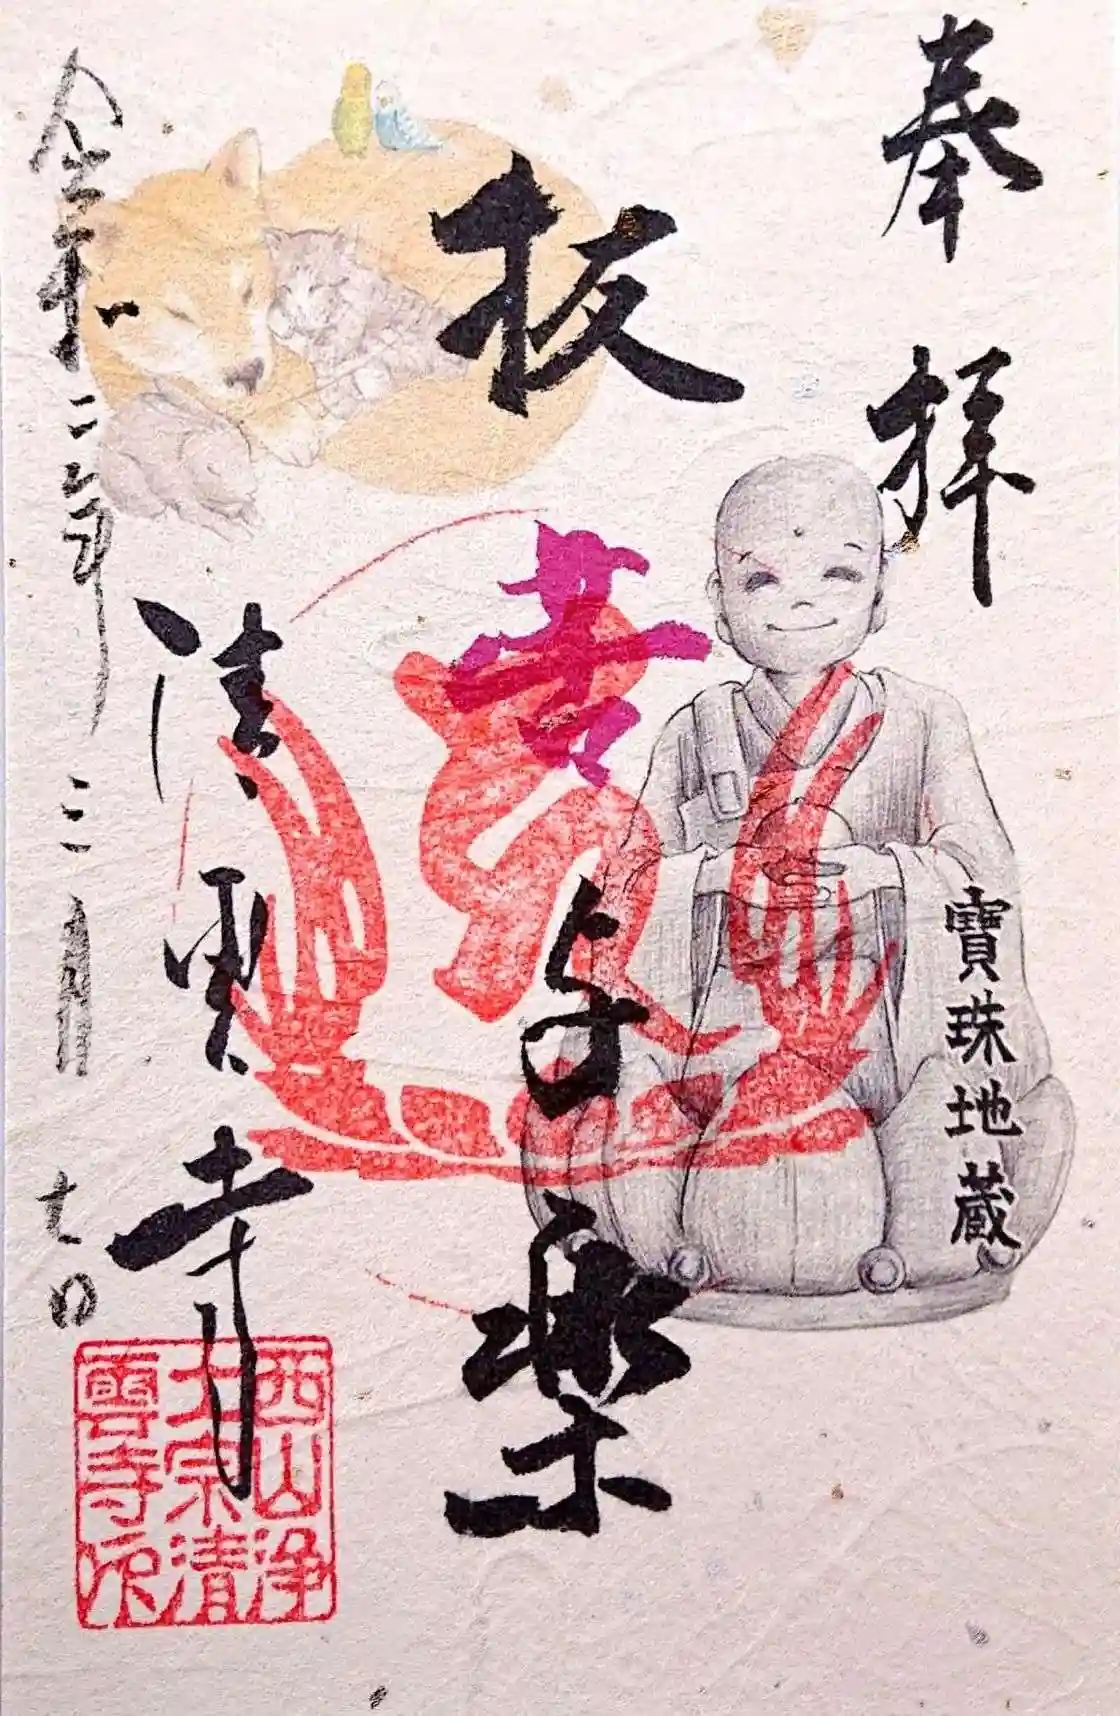 奉拝
寶珠地蔵
抜苦与楽
清雲寺
令和二年二月七日
西山浄
土宗清
雲寺印